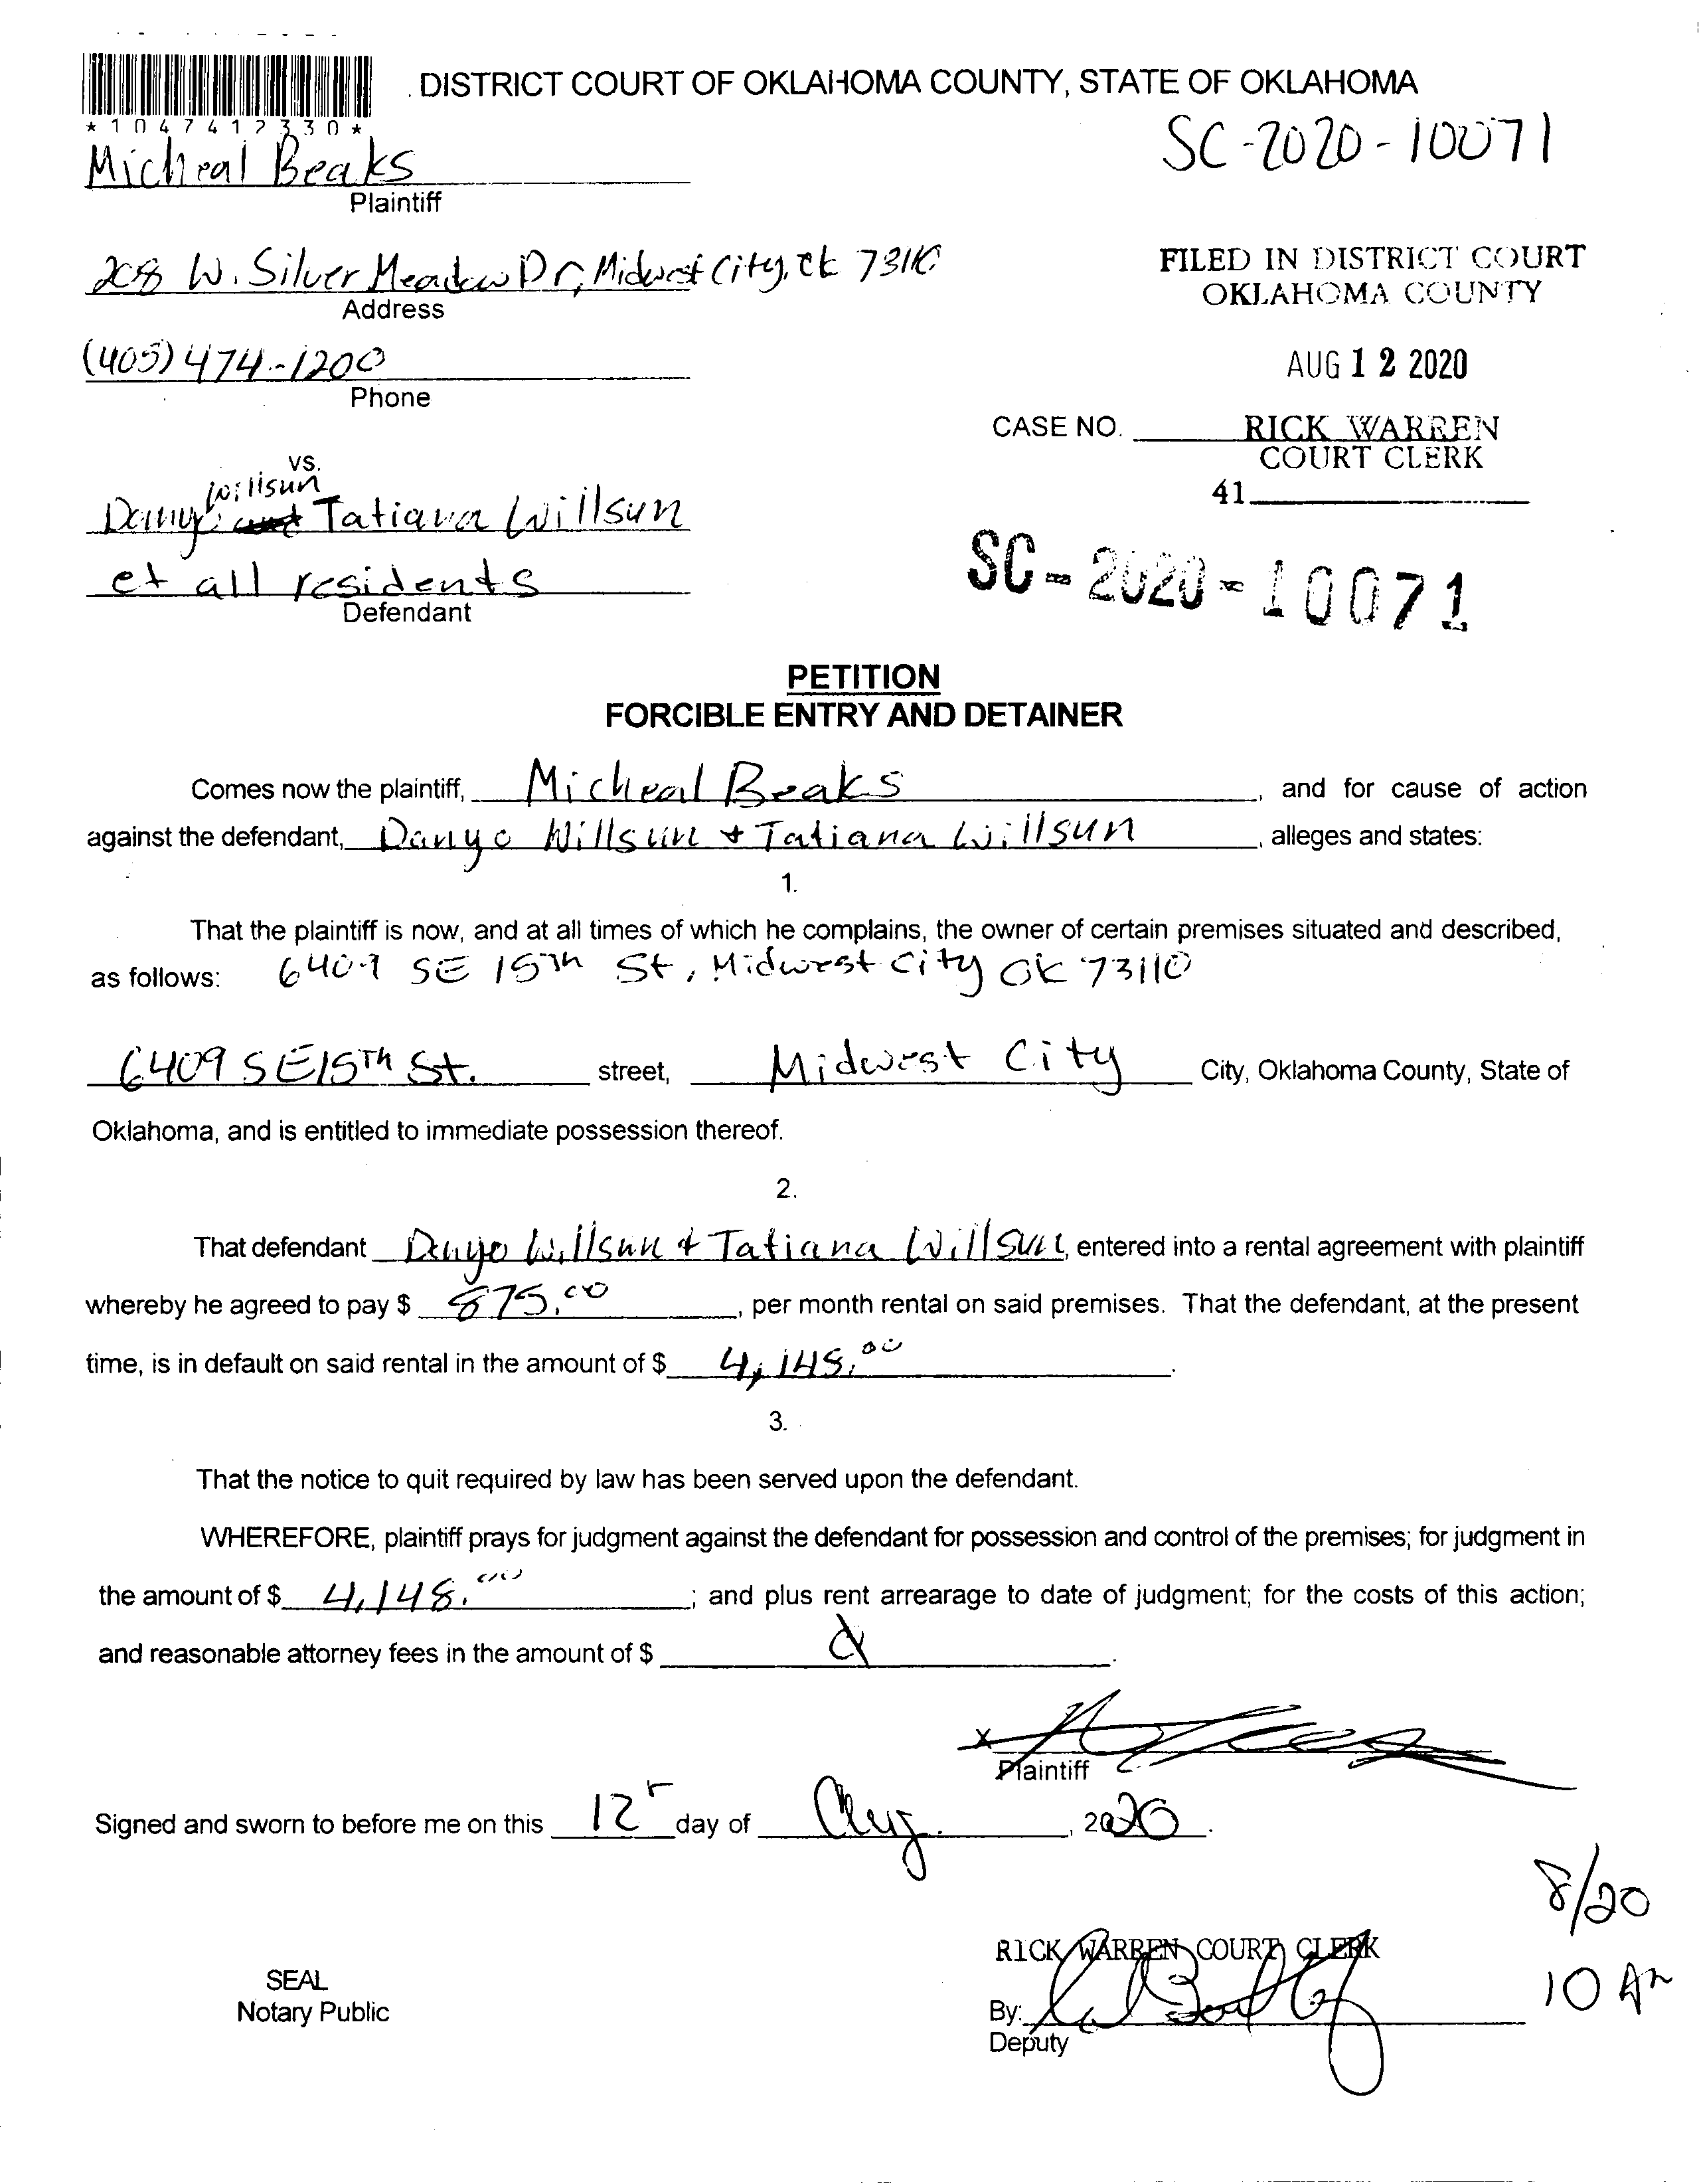 DISTRICT COURT OF OKLAHOMA COUNTY, STATE OF OKLAHOMA
*1047412330*
SC-2020-10071
Micheal Beaks
Plaintiff
208 W. Silver Meadow Dr, Midwest City, Ok 73110
Address
FILED IN DISTRICT COURT
OKLAHOMA COUNTY
(405) 474-1200
Phone
AUG 12 2020
CASE NO.
RICK WARREN
COURT CLERK
41
vs.
Willsun
Danyo and Tatiana Willsun
et all residents
Defendant
SC-2020-10071
PETITION
FORCIBLE ENTRY AND DETAINER
Comes now the plaintiff, Micheal Beaks, and for cause of action
against the defendant, Danyo Willsun + Tatiana Willsun, alleges and states:
1.
That the plaintiff is now, and at all times of which he complains, the owner of certain premises situated and described,
as follows: 6409 SE 15th St, Midwest City OK 73110
6409 SE 15th St. street, Midwest City City, Oklahoma County, State of
Oklahoma, and is entitled to immediate possession thereof.
2.
That defendant Danyo Willsun + Tatiana Willsun, entered into a rental agreement with plaintiff
whereby he agreed to pay $ 875.00, per month rental on said premises. That the defendant, at the present
time, is in default on said rental in the amount of $ 4,148.00.
3.
That the notice to quit required by law has been served upon the defendant.
WHEREFORE, plaintiff prays for judgment against the defendant for possession and control of the premises; for judgment in
the amount of $ 4,148.00; and plus rent arrearage to date of judgment; for the costs of this action;
and reasonable attorney fees in the amount of $
X
Plaintiff
Signed and sworn to before me on this 12 day of Aug., 2020.
8/20
10 Am
RICK WARREN COURT CLERK
SEAL
Notary Public
By:
Deputy